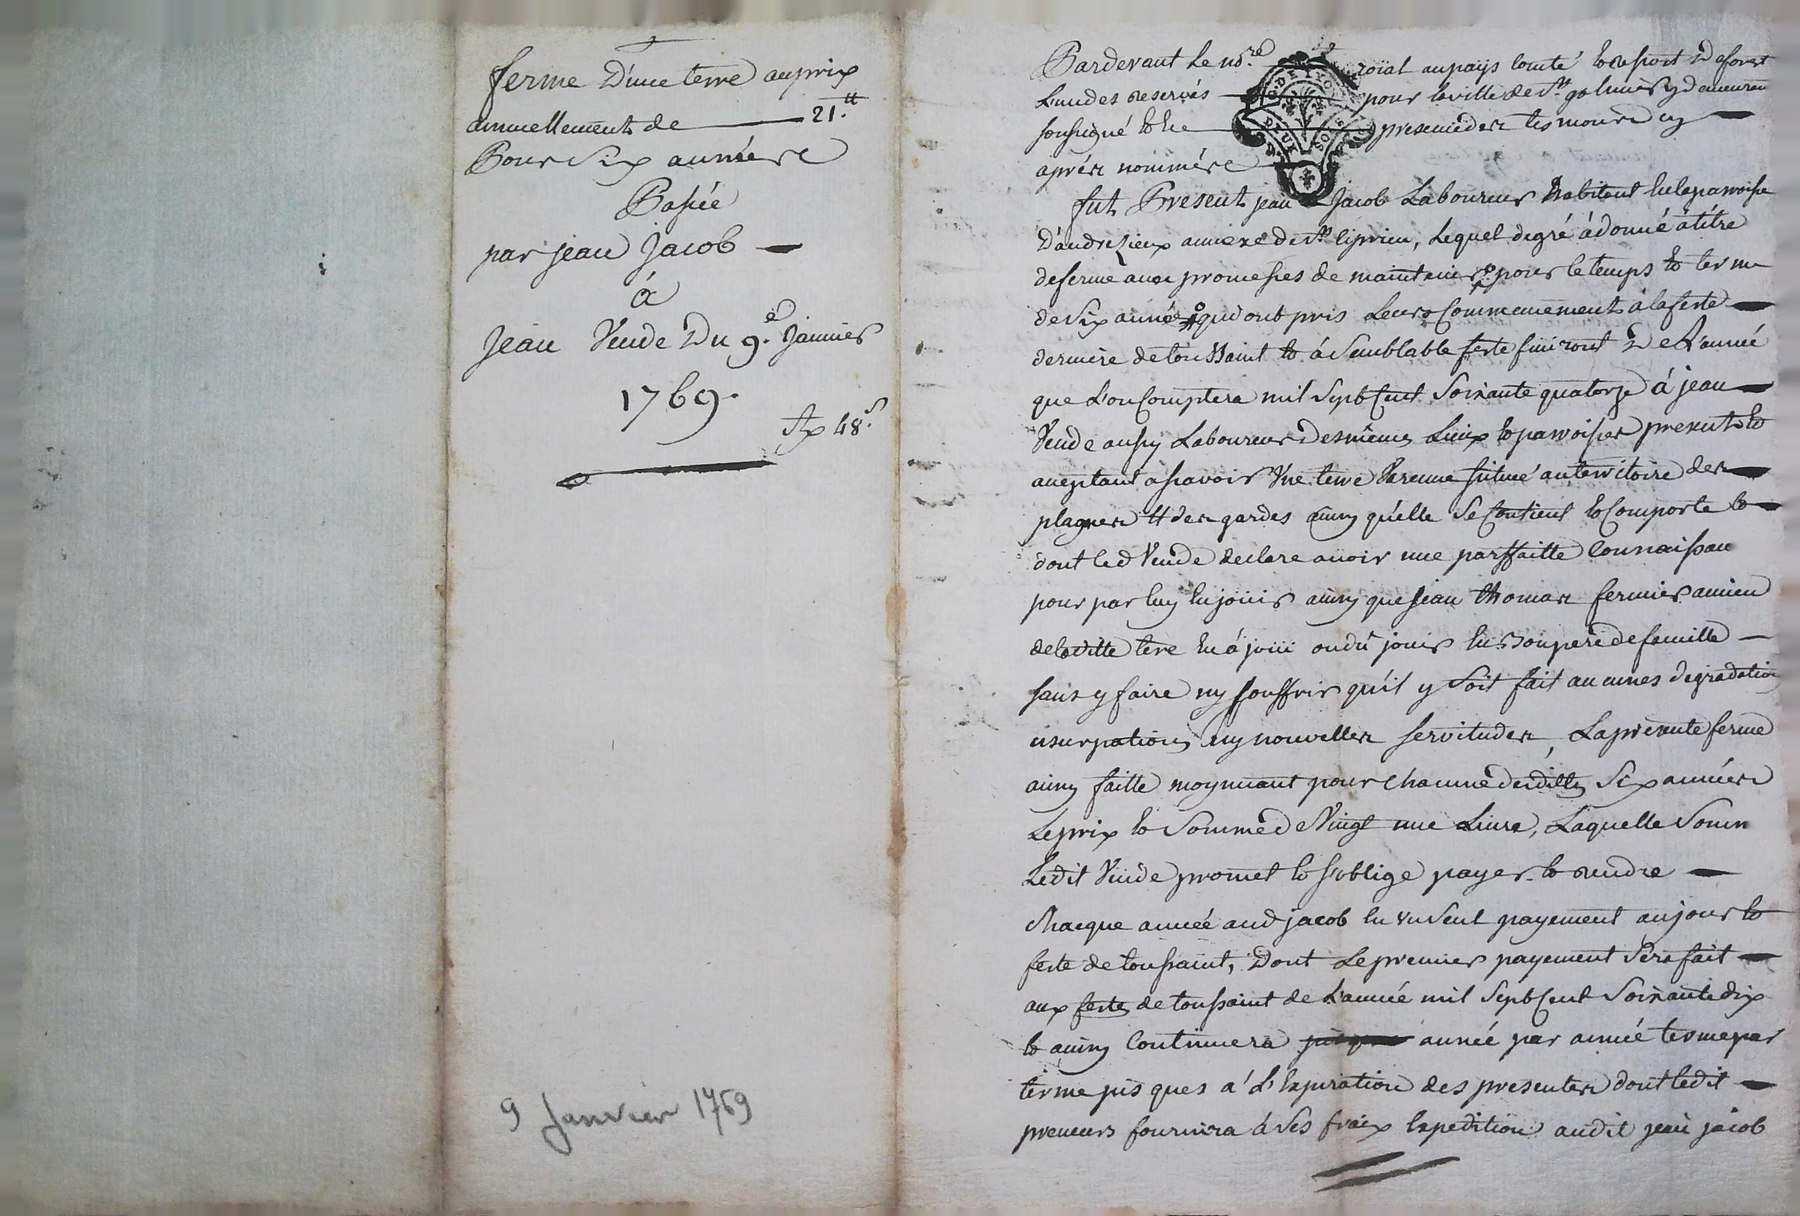 ferme D'une terre au prix
annuellement de 21.tt
Pour Six années
Passée
par jean Jacob
à
Jean Vende Du 9.e Janvier
1769.
48.s
9 Janvier 1769
Pardevant Le nore roial au pays comté et ressort de forest
L'un des reservés pour la ville de St galmier y demeurant
soussigné et en presence des tesmoins cy
après nommés
fut Present jean Jacob Laboureur habitant en la parroisse
D'andresieux annexe de St Ciprien, Lequel de gré à donné à titre
de ferme avec promesses de maintenir pour le temps et terme
de Six années qui ont pris Leurs Commencement à la feste
derniere de toussaint et à Semblable feste finiront De L'année
que L'on Comptera mil Sept Cent Soixante quatorze à jean
Vende aussy Laboureur Desmêmes Lieux et parroisses present et
acceptant assavoir Une terre Varenne situeé au territoire des
plagnes des gardes ainsy qu'elle Se Contient et Comporte et
dont led Vende declare avoir une parffaitte Connaissan
pour par luy en jouir ainsy que jean thomas fermier ancien
de laditte tere en à joui ou dû jouir en bon pere de famille
sans y faire ny souffrir qu'il y Soit fait aucunes degradation
usurpations ny nouvelles servitudes, La presente ferme
ainsy faitte moynnant pour chacune desdittes Six années
Le prix et Somme de Vingt une Livre, Laquelle Somm
Ledit Vende promet et s'oblige payer et rendre
chacque année aud jacob en un Seul payement au jour et
feste de toussaint, Dont Le premier payement Sera fait
aux festes de toussaint de L'année mil Sept Cent Soixante dix
et ainsy Continuera année par année terme par
terme jusques a L'Expiration des presentes dont ledit
preneur fournira à Ses fraix Expedition audit jean jacob